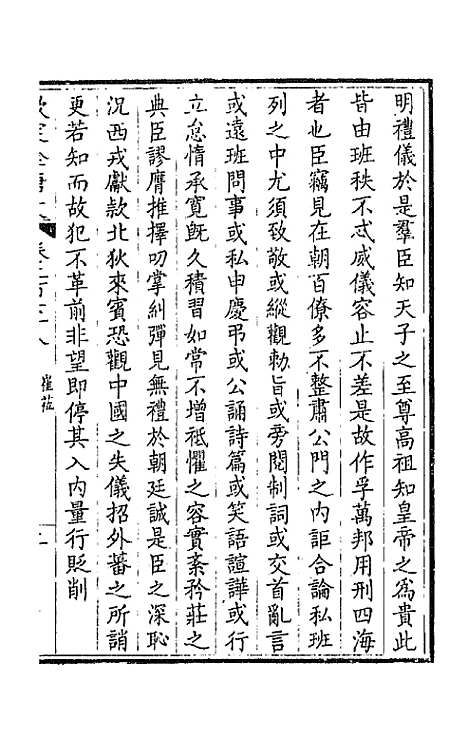 明禮儀於是羣臣知天子之至尊高祖知皇帝之爲貴此
皆由班秩不忒威儀容止不差是故作孚萬邦用刑四海
者也臣竊見在朝百僚多不整肅公門之內詎合論私班
列之中尤須致敬或縱觀勅旨或旁閱制詞或交首亂言
或遠班問事或私申慶弔或公誦詩篇或笑語諠譁或行
立怠惰承寬旣久積習如常不增祗懼之容實紊矜莊之
典臣謬膺推擇叨掌糾彈見無禮於朝廷誠是臣之深恥
況西戎獻款北狄來賓恐觀中國之失儀招外蕃之所誚
更若知而故犯不革前非望即停其入內量行貶削
欽定全唐文 卷二百
崔蒞